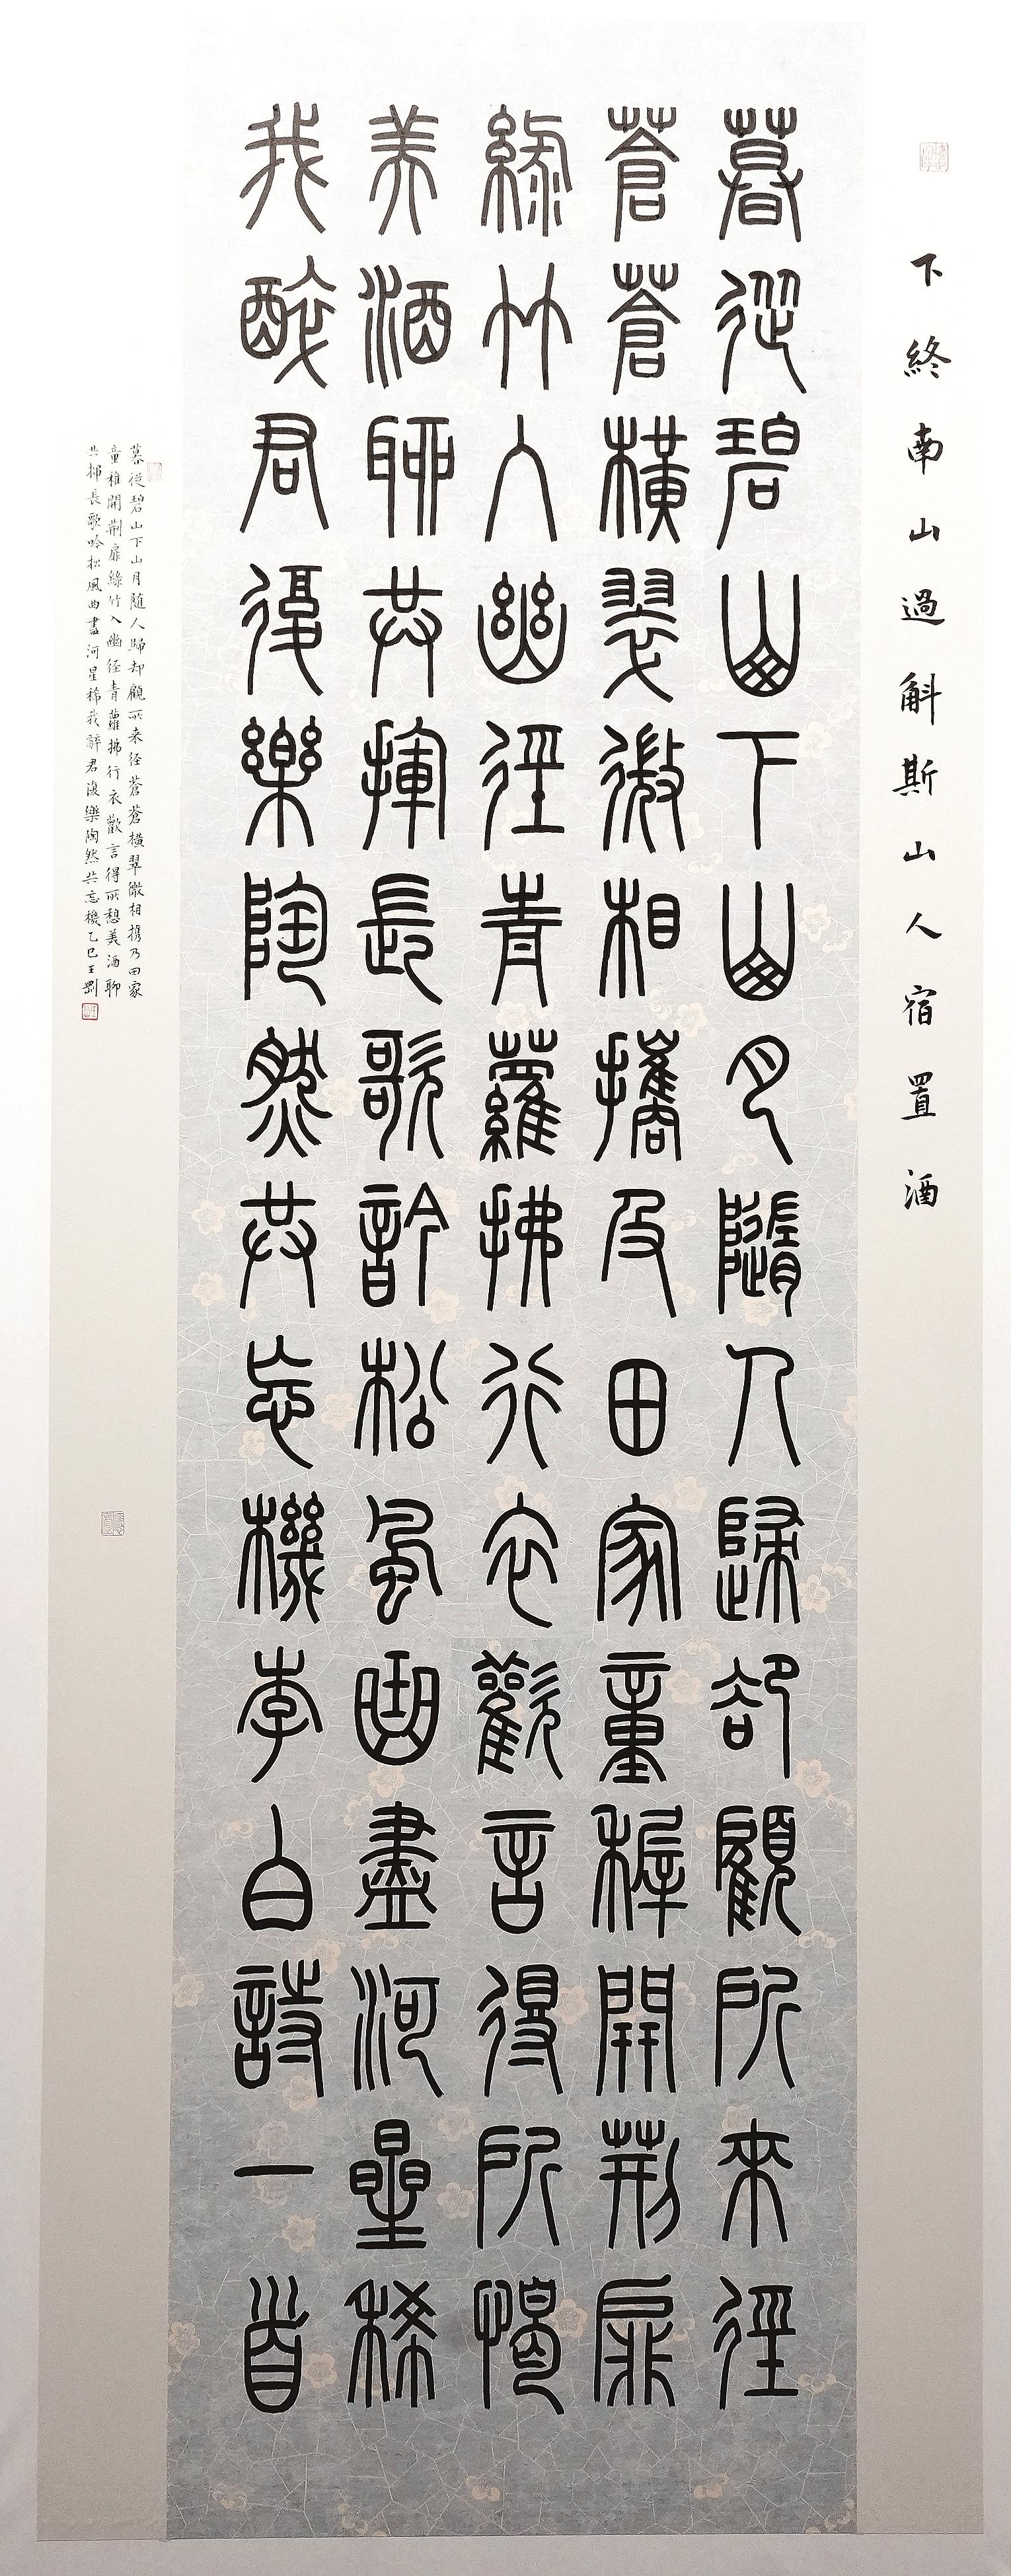 下終南山過斛斯山人宿置酒
暮從碧山下山月隨人歸卻顧所來徑
蒼蒼橫翠微相攜及田家童稚開荆扉
綠竹入幽徑青蘿拂行衣歡言得所憩
美酒聊共揮長歌吟松風曲盡河星稀
我醉君復樂陶然共忘機李白詩一首
暮從碧山下山月随人歸却顧所来径蒼蒼橫翠微相携乃田家
童稚開荆扉綠竹入幽径青蘿拂行衣歡言得所憩美酒聊
共揮長歌吟松風曲盡河星稀我醉君復樂陶然共忘機乙巳王剛